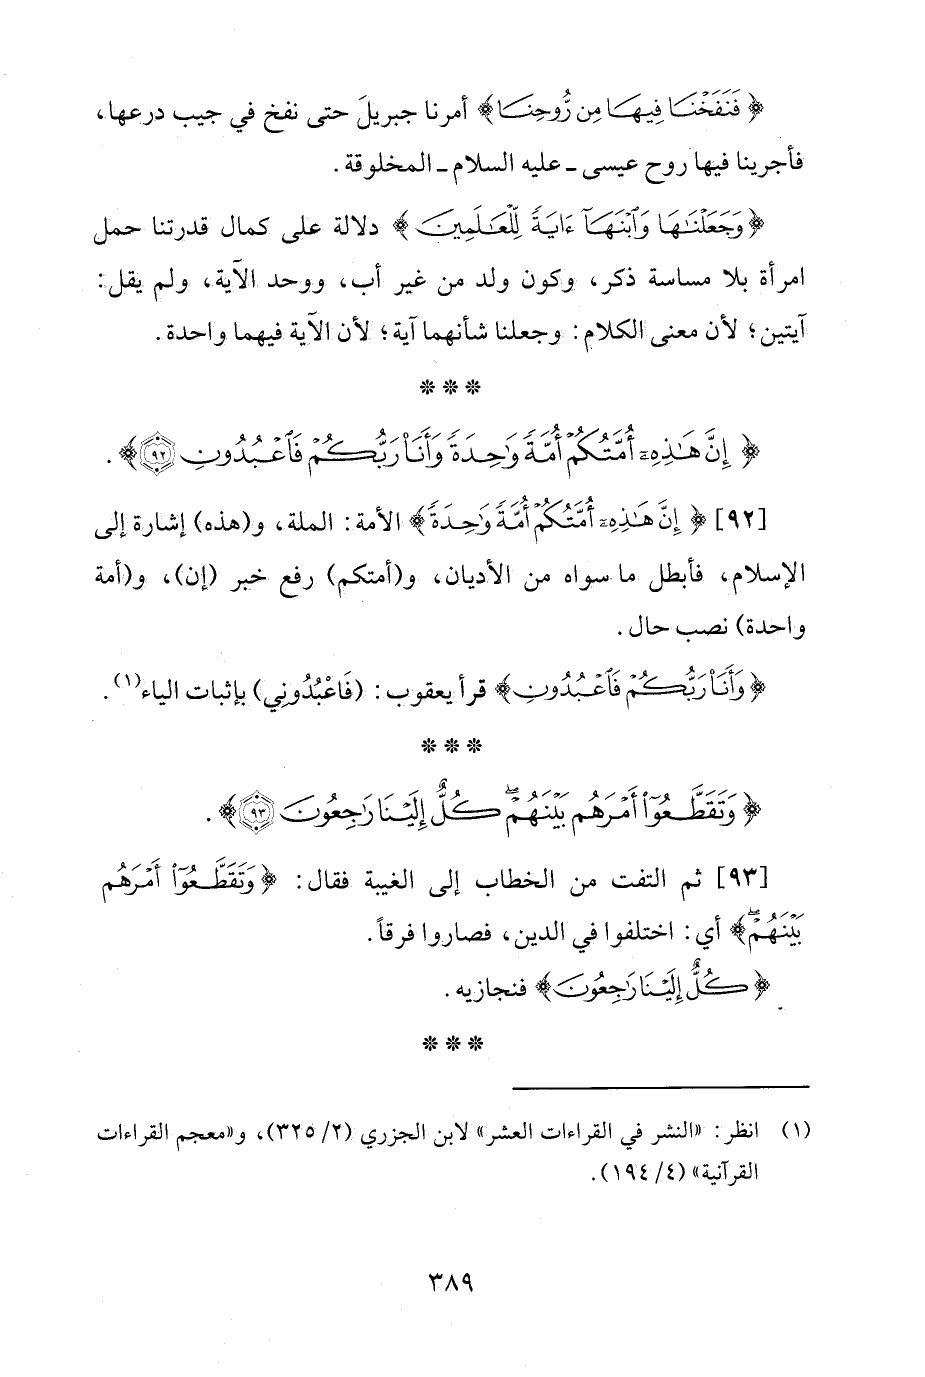 ﴿ فَنَفَخْنَا فِيهَا مِن رُّوحِنَا﴾ أمرنا جبريلَ حتى نفخ في جيب درعها،
فأجرينا فيها روح عيسى ـ عليه السلام ـ المخلوقة .
﴿ وَجَعَلْنَٰهَا وَٱبْنَهَآ ءَايَةً لِّلْعَٰلَمِينَ ﴾ دلالة على كمال قدرتنا حمل
امرأة بلا مساسة ذكر، وكون ولد من غير أب، ووحد الآية، ولم يقل:
آيتين؛ لأن معنى الكلام: وجعلنا شأنهما آية؛ لأن الآية فيهما واحدة.
* * *
﴿ إِنَّ هَٰذِهِۦٓ أُمَّتُكُمْ أُمَّةً وَٰحِدَةً وَأَنَا۠ رَبُّكُمْ فَٱعْبُدُونِ ٩٢﴾ .
[٩٢] ﴿ إِنَّ هَٰذِهِۦٓ أُمَّتُكُمْ أُمَّةً وَٰحِدَةً﴾ الأمة: الملة، و(هذه) إشارة إلى
الإسلام، فأبطل ما سواه من الأديان، و(أمتكم) رفع خبر (إن)، و(أمة
واحدة) نصب حال .
﴿ وَأَنَا۠ رَبُّكُمْ فَٱعْبُدُونِ﴾ قرأ يعقوب: (فَاعْبُدُونِي) بإثبات الياء(١).
* * *
﴿ وَتَقَطَّعُوٓا۟ أَمْرَهُم بَيْنَهُمْ ۖ كُلٌّ إِلَيْنَا رَٰجِعُونَ ٩٣﴾ .
[٩٣] ثم التفت من الخطاب إلى الغيبة فقال: ﴿ وَتَقَطَّعُوٓا۟ أَمْرَهُم
بَيْنَهُمْ ۖ﴾ أي: اختلفوا في الدين، فصاروا فرقاً.
﴿ كُلٌّ إِلَيْنَا رَٰجِعُونَ﴾ فنجازيه .
* * *
(١) انظر: «النشر في القراءات العشر» لابن الجزري (٢/ ٣٢٥)، و«معجم القراءات
القرآنية» (٤/ ١٩٤).
٣٨٩